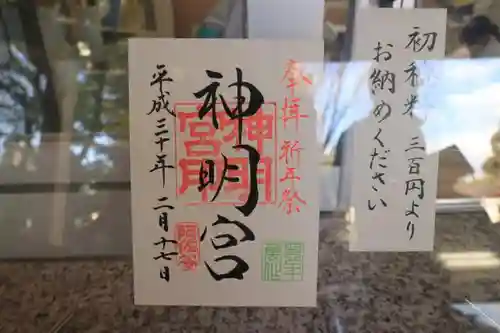 初穂料 三百円より
お納めください
奉拝 祈年祭
神明宮
平成三十年 二月十七日
神明
宮印
阿佐谷